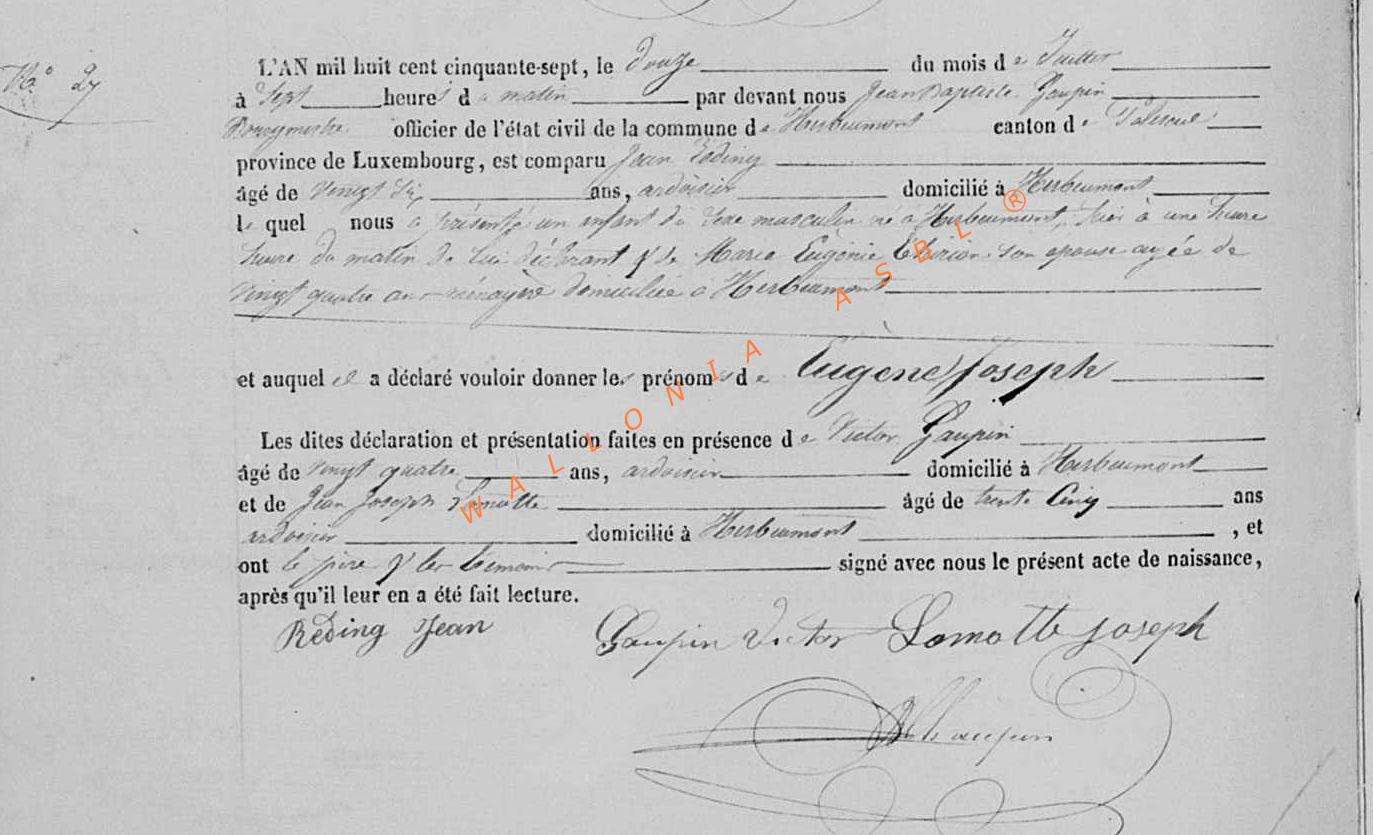 N.° 27
L'AN mil huit cent cinquante-sept, le Douze du mois de Juillet
à Sept heures du matin par devant nous Jean Baptiste Gaupin
Bourgmestre officier de l'état civil de la commune de Herbeumont canton de Paliseul
province de Luxembourg, est comparu Jean Réding
âgé de vingt six ans, ardoisier domicilié à Herbeumont
le quel nous a présenté un enfant du sexe masculin né à Herbeumont, hier à une heure
heure du matin de lui déclarant & de Marie Eugénie son épouse agée de
vingt quatre ans ménagère domiciliée à Herbeumont
et auquel il a déclaré vouloir donner les prénoms de Eugène Joseph
Les dites déclaration et présentation faites en présence de Victor Gaupin
âgé de vingt quatre ans, ardoisier domicilié à Herbeumont
et de Jean Joseph Lamotte âgé de trente cinq ans
ardoisier domicilié à Herbeumont, et
ont le père & les témoins signé avec nous le présent acte de naissance,
après qu'il leur en a été fait lecture.
Réding Jean Gaupin Victor Lamotte Joseph
WALLONIA ASBL ®